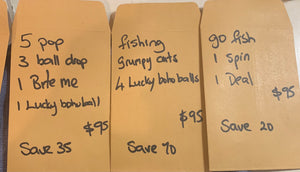 5 pop
3 ball drop
1 Bite me
1 Lucky boho ball
$95
Save 35
fishing
Grumpy cats
4 Lucky boho balls
$95
Save 70
go fish
1 Spin
1 Deal
$95
Save 20